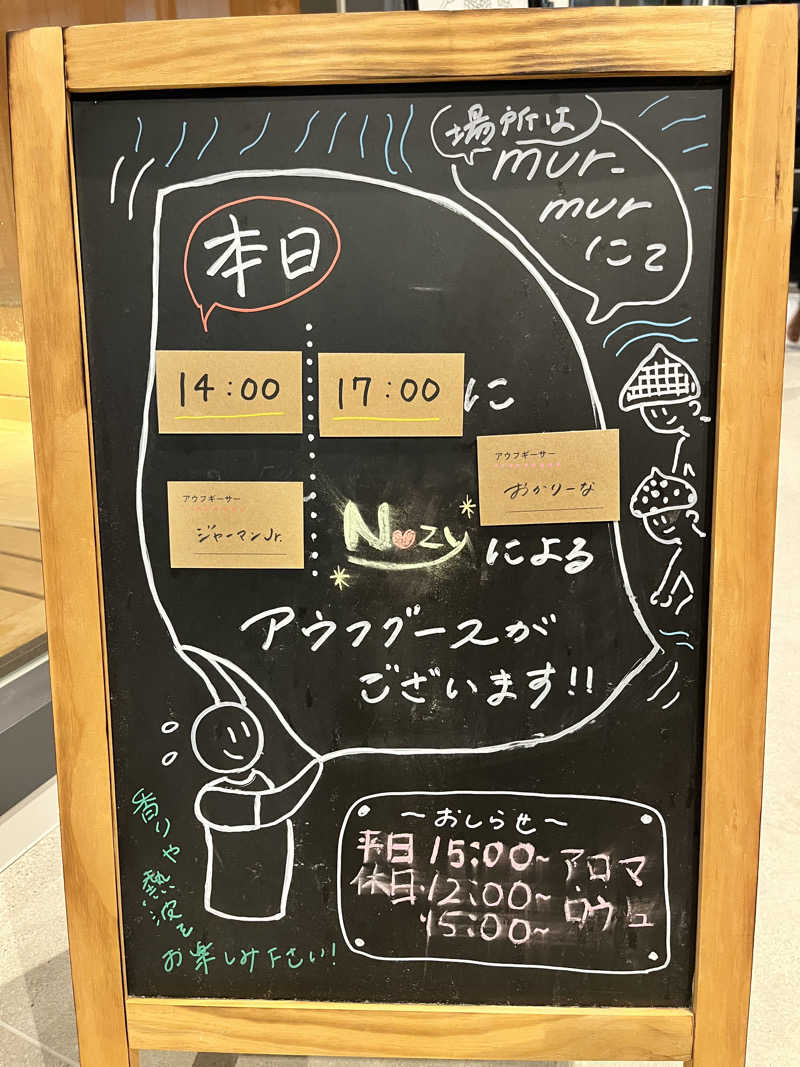 場所は
mur-
mur
にて
本日
14:00
17:00 に
アウフギーサー
ジャーマンJr.
アウフギーサー
おかりーな
Nozy による
アウフグースが
ございます!!
～おしらせ～
平日 15:00～ アロマ
休日 12:00～ ロウリュ
15:00～
香りや熱波を
お楽しみ下さい!